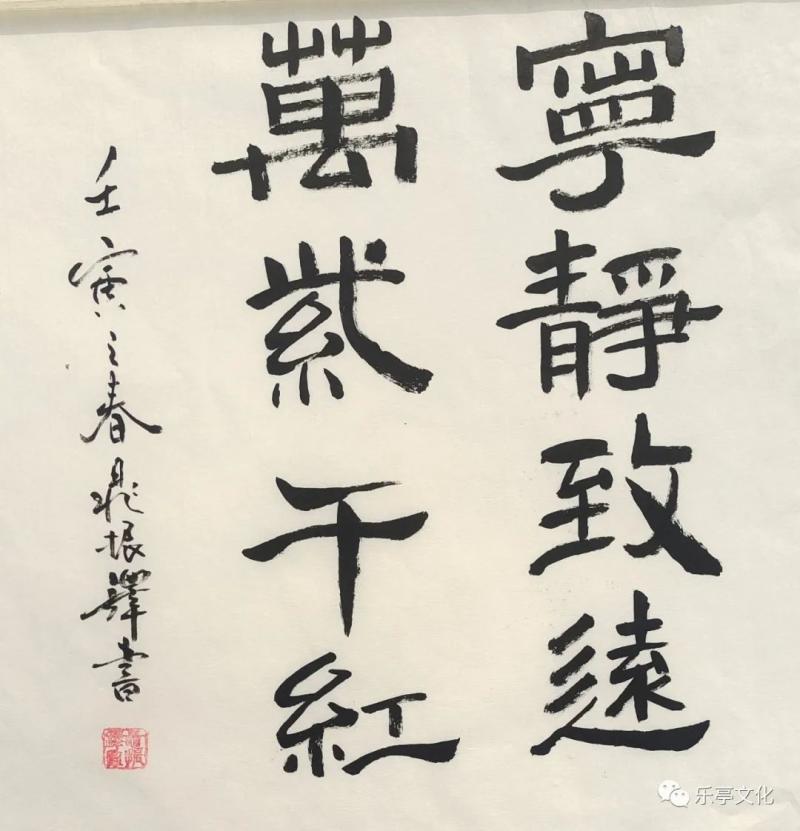 寧靜致遠
萬紫千紅
壬寅之春 書
乐亭文化